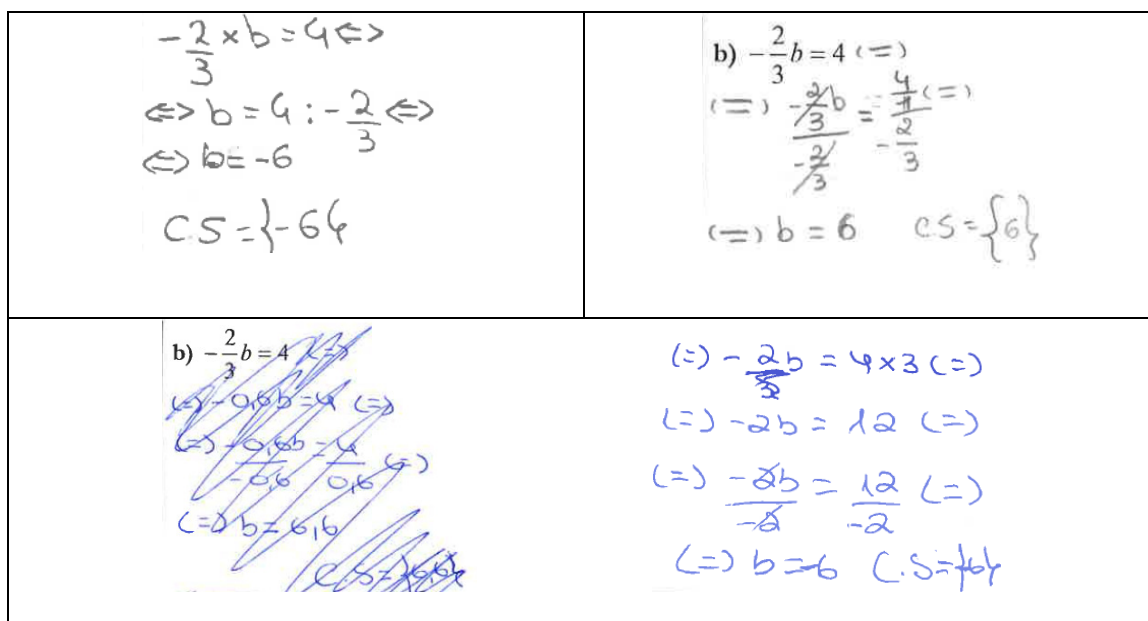 -2/3 × b = 4 <=>
<=> b = 4 : -2/3 <=>
<=> b = -6
CS = }-6{
b) -2/3 b = 4 (=)
(=) (-2/3 b)/(-2/3) = (-4/1)/(-2/3) (=)
(=) b = 6 CS = {6}
b) -2/3 b = 4 (=)
(=) -0,6b = 4 (=)
(=) -0,6b/-0,6 = 4/0,6 (=)
(=) b = 6,6
C.S = }6,6{
(=) -2b/3 = 4 × 3 (=)
(=) -2b = 12 (=)
(=) -2b/-2 = 12/-2 (=)
(=) b = -6 C.S = }-6{